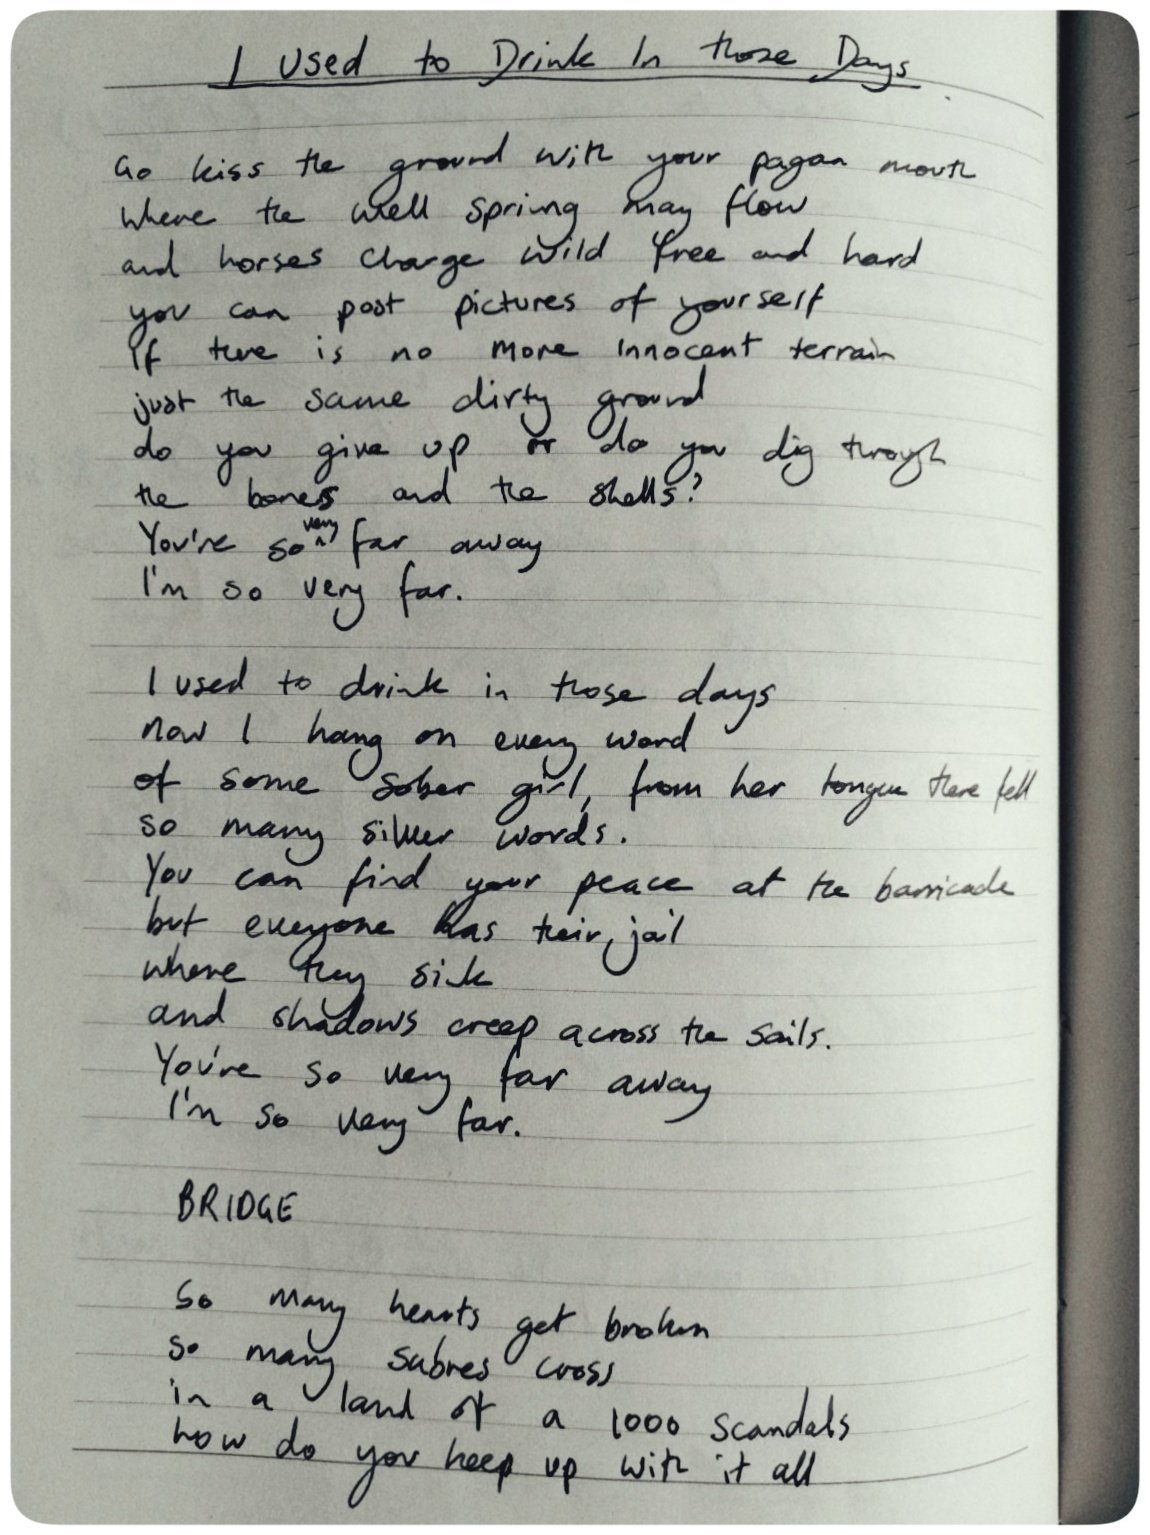 I Used to Drink In those Days
Go kiss the ground with your pagan mouth
where the well spring may flow
and horses charge wild free and hard
you can post pictures of yourself
If there is no more innocent terrain
just the same dirty ground
do you give up or do you dig through
the bones and the shells?
You're so very far away
I'm so very far.
I used to drink in those days
now I hang on every word
of some sober girl, from her tongue there fell
so many silver words.
You can find your peace at the barricade
but everyone has their jail
where they sink
and shadows creep across the sails.
You're so very far away
I'm so very far.
BRIDGE
So many hearts get broken
so many sabres cross
in a land of a 1000 scandals
how do you keep up with it all